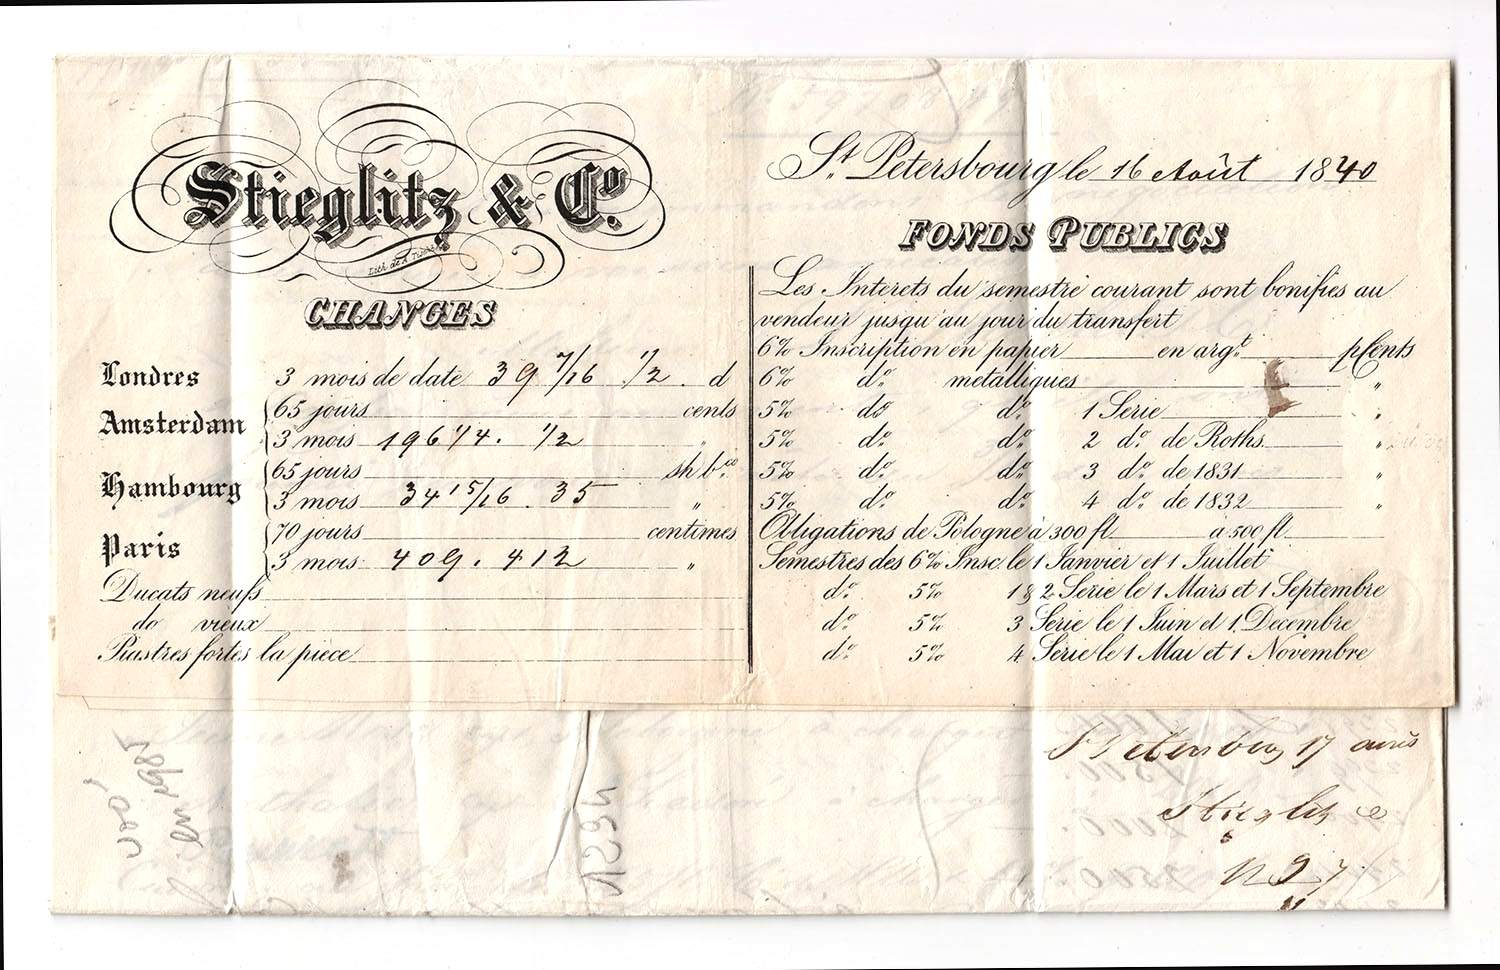 Stieglitz & Co.
CHANGES
Londres 3 mois de date 39 7/16 1/2 d
Amsterdam 65 jours cents
3 mois 196 1/4. 1/2 "
Hambourg 65 jours sh bco
3 mois 34 15/16. 35 "
Paris 70 jours centimes
3 mois 409. 412 "
Ducats neufs
do vieux
Piastres fortes la pièce
St. Petersbourg le 16 Août 1840
FONDS PUBLICS
Les Interets du semestre courant sont bonifiés au
vendeur jusqu'au jour du transfert
6% Inscription en papier en argt. pCents
6% do. metalliques "
5% do do. 1 Serie "
5% do. do. 2 do. de Roths. "
5% do. do. 3 do. de 1831 "
5% do. do. 4 do. de 1832 "
Obligations de Pologne à 300 fl. à 500 fl.
Semestres des 6% Insc. le 1 Janvier et 1 Juillet
do. 5% 1 & 2 Serie le 1 Mars et 1 Septembre
do. 5% 3 Serie le 1 Juin et 1 Decembre
do. 5% 4 Serie le 1 Mai et 1 Novembre
St Petersburg 17
Stieglitz